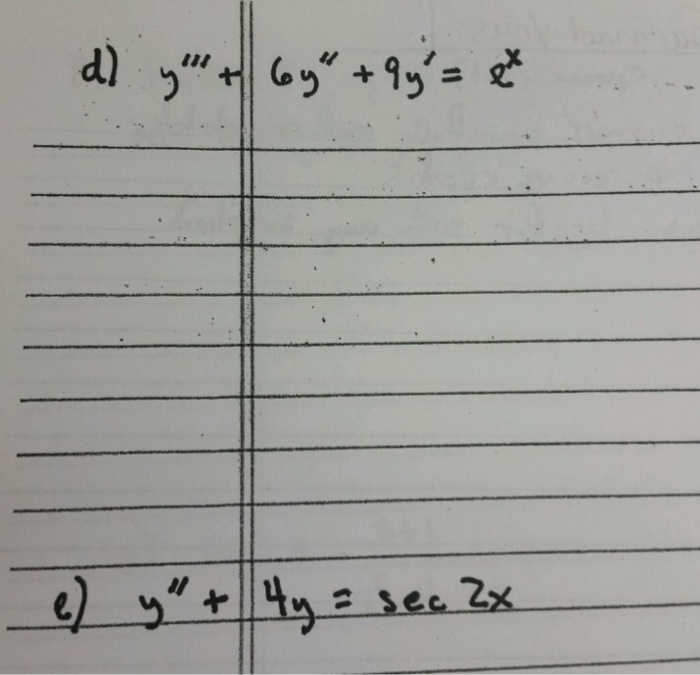 d) y''' + 6y'' + 9y' = e^x
e) y'' + 4y = sec 2x